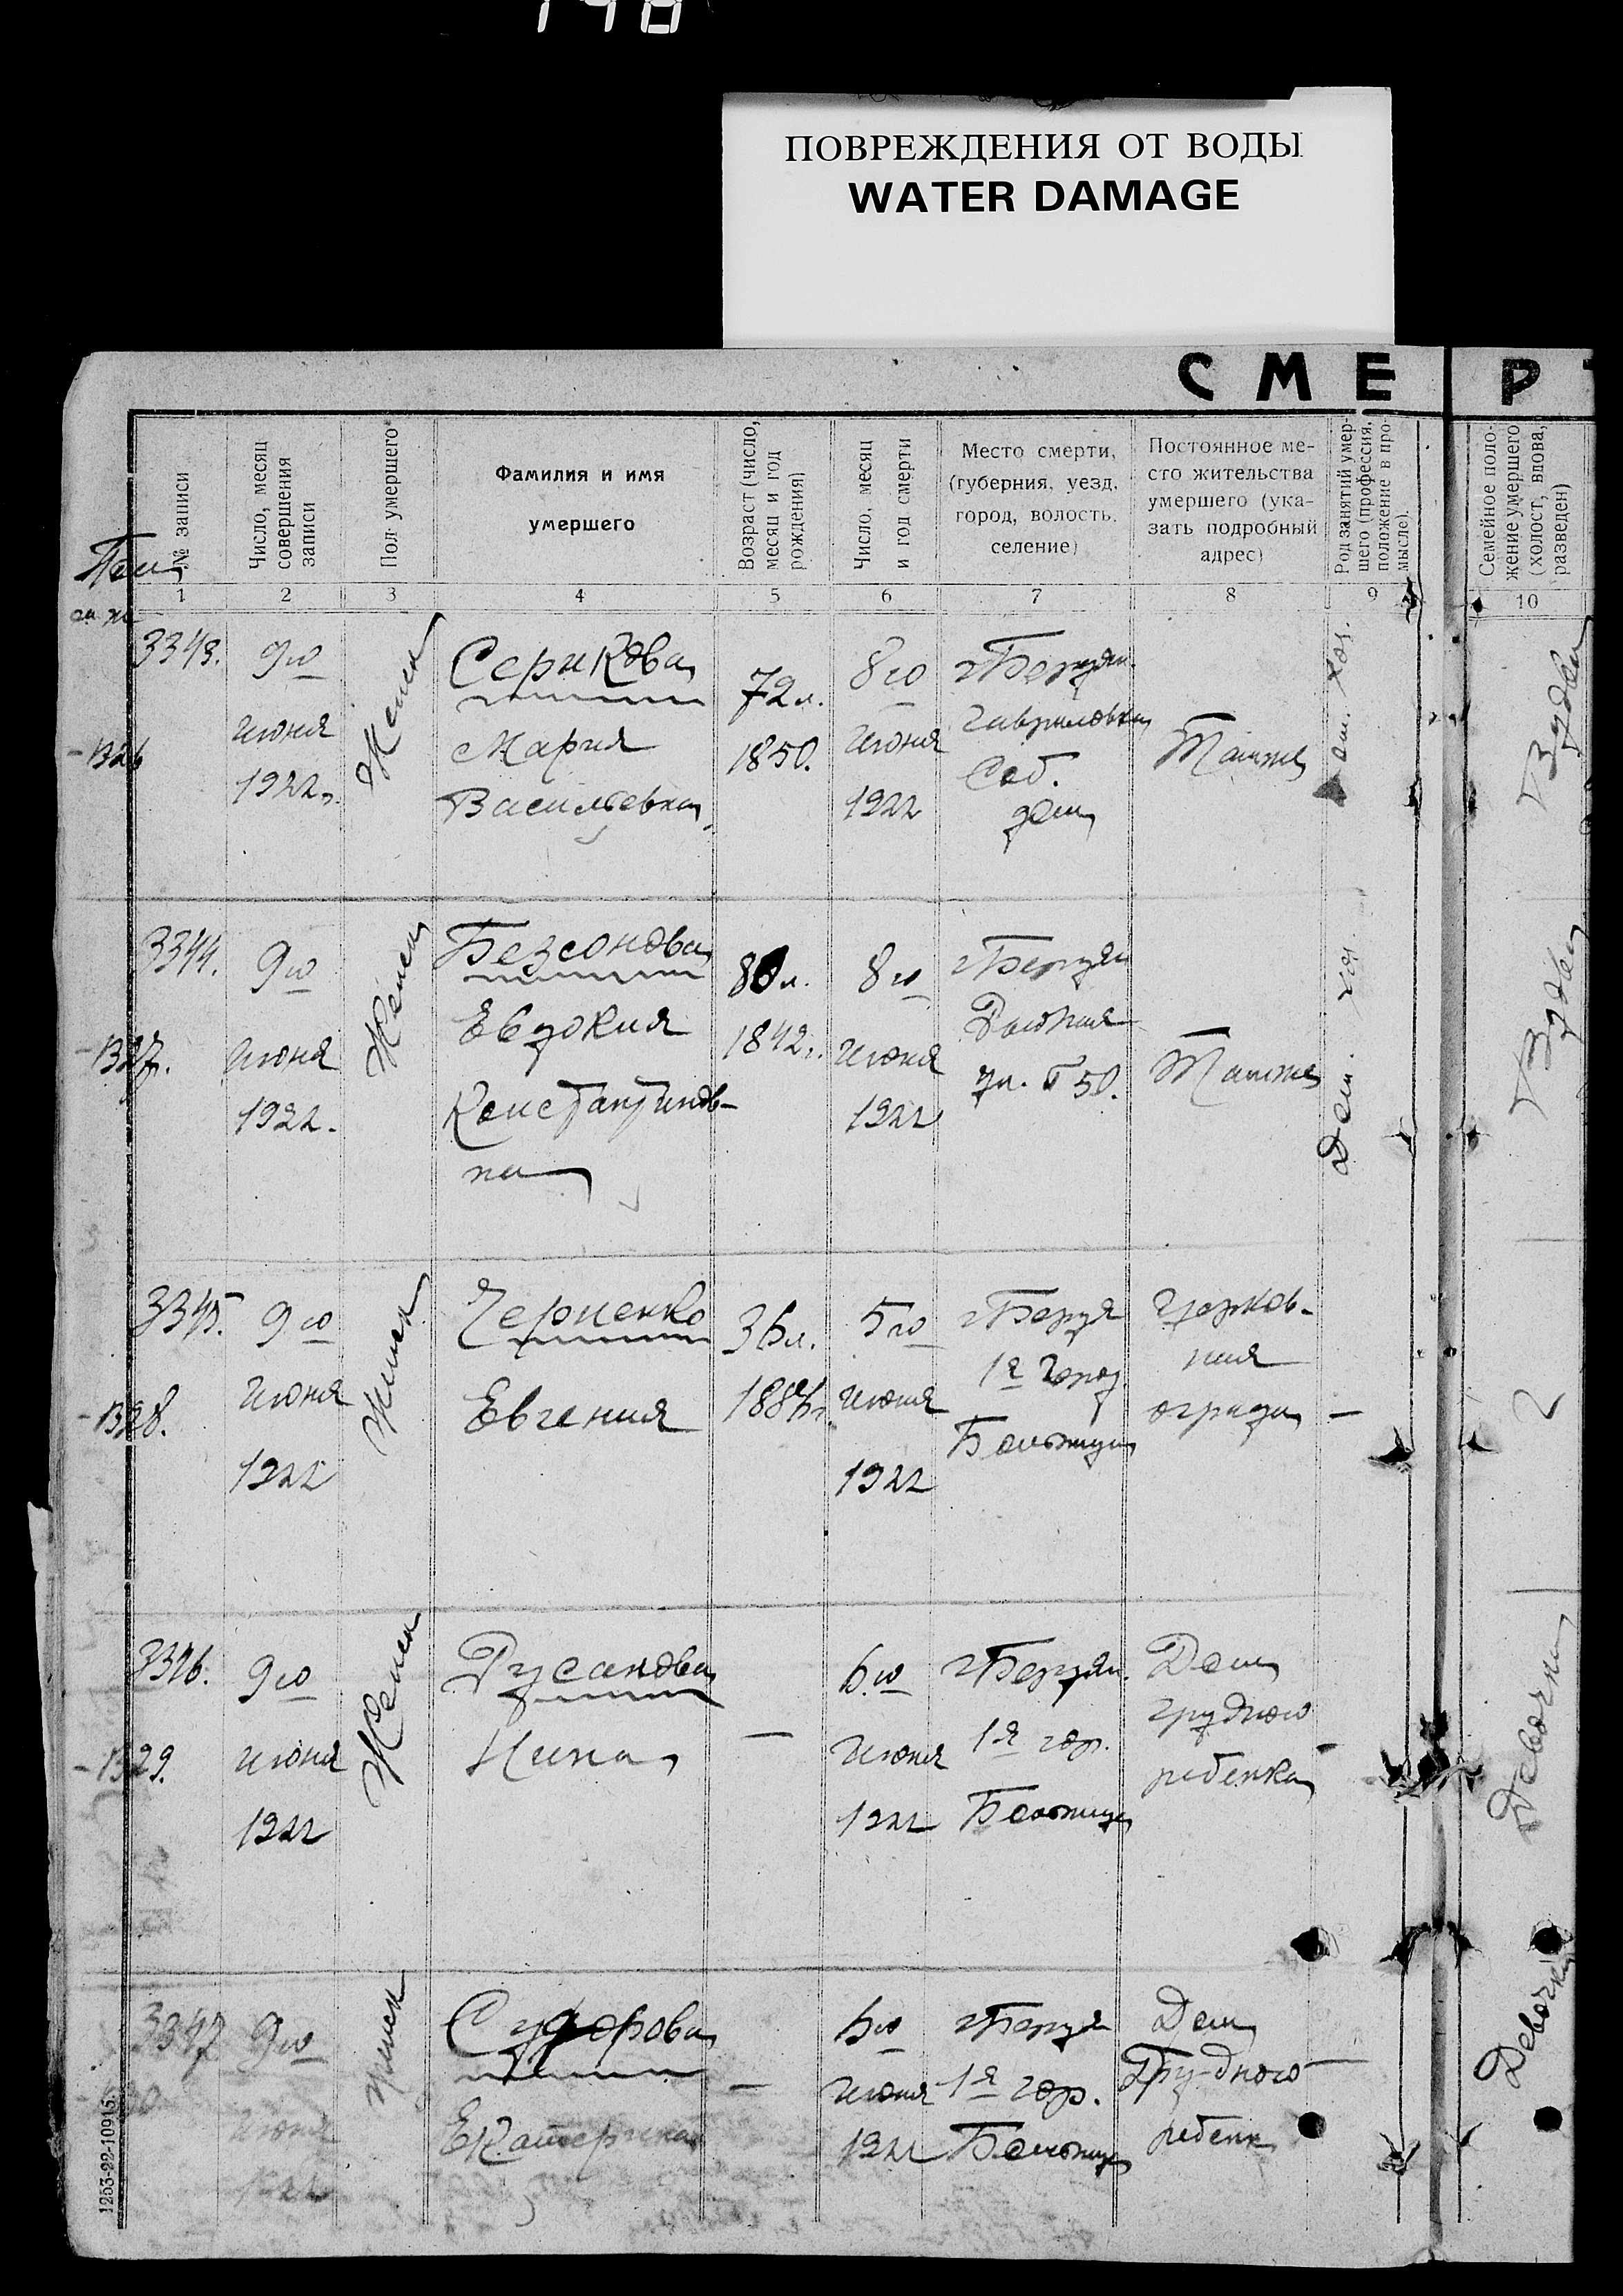 198
ПОВРЕЖДЕНИЯ ОТ ВОДЫ
WATER DAMAGE
СМЕ Р
№ записи
Число, месяц
совершения
записи
Пол умершего
Фамилия и имя
умершего
Возраст (число,
месяц и год
рождения)
Число, месяц
и год смерти
Место смерти,
(губерния, уезд,
город, волость,
селение)
Постоянное ме-
сто жительства
умершего (ука-
зать подробный
адрес)
Род занятий умер-
шего (профессия,
положение в про-
мысле).
Семейное поло-
жение умершего
(холост, вдова,
разведен)
1 2 3 4 5 6 7 8 9 10
3343.
1326
9го
июня
1922г.
Женск
Серикова
Мария
Васильевна
72 л.
1850.
8го
июня
1922
г Бердян.
Гавриловка
Соб.
дом
Таmже
дом. хоз.
Вдова
3344.
1327.
9го
июня
1922.
Женск
Безсонова
Евдокия
Константинов-
на
80 л.
1842г.
8го
июня
1922
г Бердян
ул. № 50.
Таmже
Дом. хоз.
Вдова
3345.
1328.
9го
июня
1922
Женск
Черненко
Евгения
36 л.
5го
июня
1922
г Бердя
1я город.
Больница
Церков-
ная
ограда
—
?
3346.
1329.
9го
июня
1922
Женск
Русанова
Нина
—
6го
июня
1922
г Бердян.
1я гор.
Больница
Дом
грудного
ребенка
—
Девочка
3347
9го
июня
1922
Женск
Екатерина
—
6го
июня
1922
г Бердян
1я гор.
Больница
Дом
Грудного
ребенк
—
Девочка
1253-22-10915